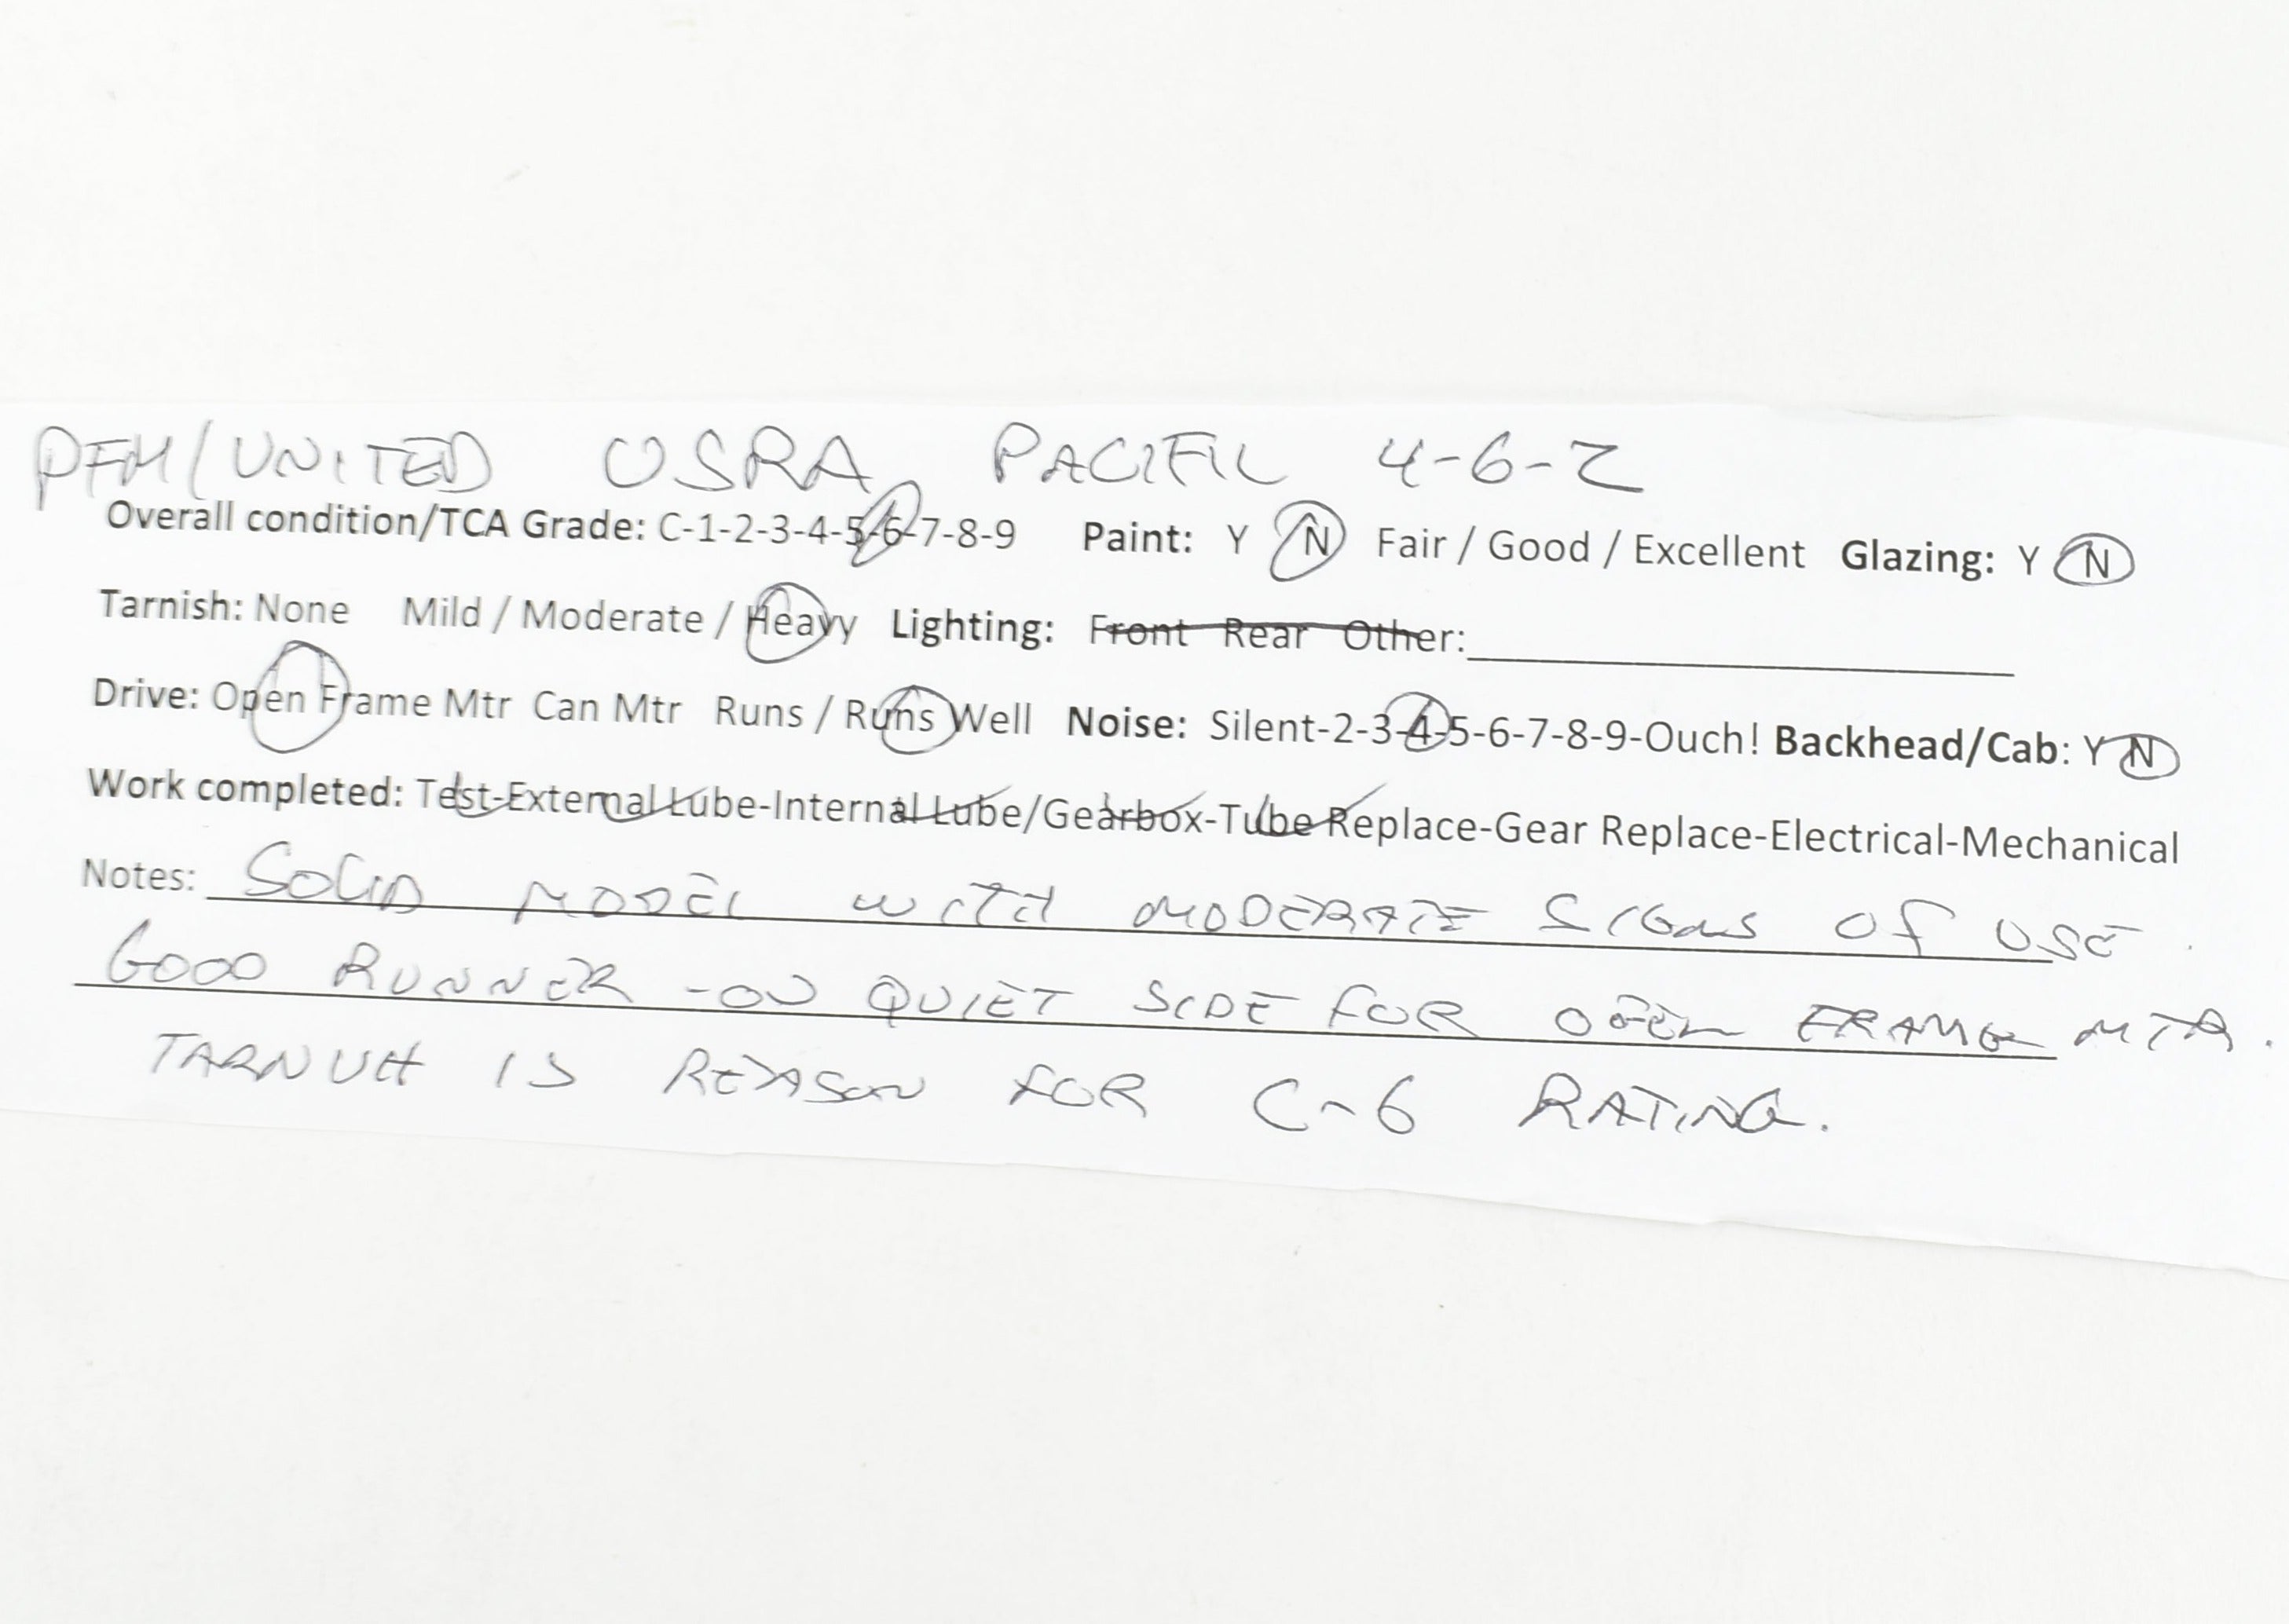 PFM/UNITED USRA PACIFIC 4-6-2
Overall condition/TCA Grade: C-1-2-3-4-5-6-7-8-9 Paint: Y N Fair / Good / Excellent Glazing: Y N
Tarnish: None Mild / Moderate / Heavy Lighting: Front Rear Other:
Drive: Open Frame Mtr Can Mtr Runs / Runs Well Noise: Silent-2-3-4-5-6-7-8-9-Ouch! Backhead/Cab: Y N
Work completed: Test-External Lube-Internal Lube/Gearbox-Tube Replace-Gear Replace-Electrical-Mechanical
Notes: SOLID MODEL WITH MODERATE SIGNS OF USE.
GOOD RUNNER - ON QUIET SIDE FOR OPEN FRAME MTR.
TARNISH IS REASON FOR C-6 RATING.